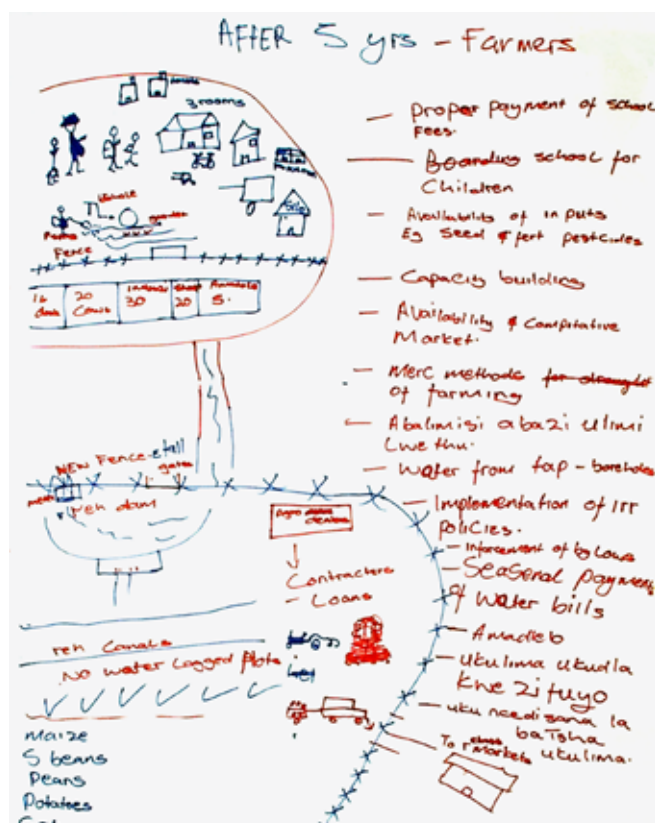 AFTER 5 yrs - Farmers
3 rooms
Silo
garden
Fence
20
Cows
30
20
5.
NEW Fence
gates
reh dam
Contracters
- Loans
reh Canals
No water Logged plots
maize
S beans
Peans
Potatoes
- Proper payment of school
Fees.
- Boarding school for
Children
- Availability of in puts
Eg seed & fert pesticides
- Capacity building
- Availability & Compitative
Market.
- Merc methods for drought
of farming
- Abalimisi abazi ulimi
Lwethu.
- Water from tap - boreholes
- Implementation of irr
policies.
- Inforcement of by Laws
- Seasonal payment
of water bills
- Amadieb
- ukulima ukudla
kwe zifuyo
- uku needisana la
batsha
ukulima.
To 1st class
Markets